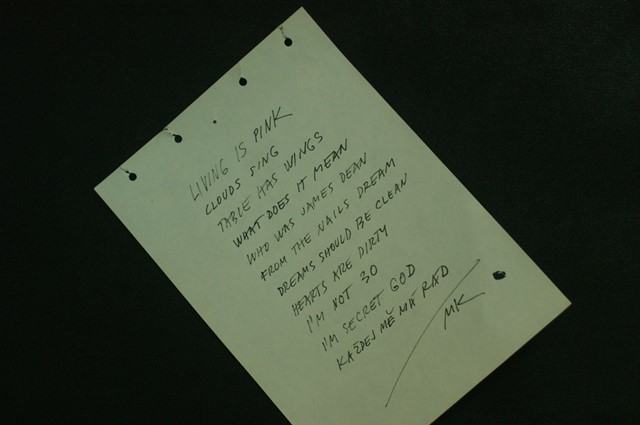 LIVING IS PINK
CLOUDS SING
TABLE HAS WINGS
WHAT DOES IT MEAN
WHO WAS JAMES DEAN
FROM THE NAILS DREAM
DREAMS SHOULD BE CLEAN
HEARTS ARE DIRTY
I'M NOT 30
I'M SECRET GOD
KAŽDEJ MĚ MÁ RÁD
MK